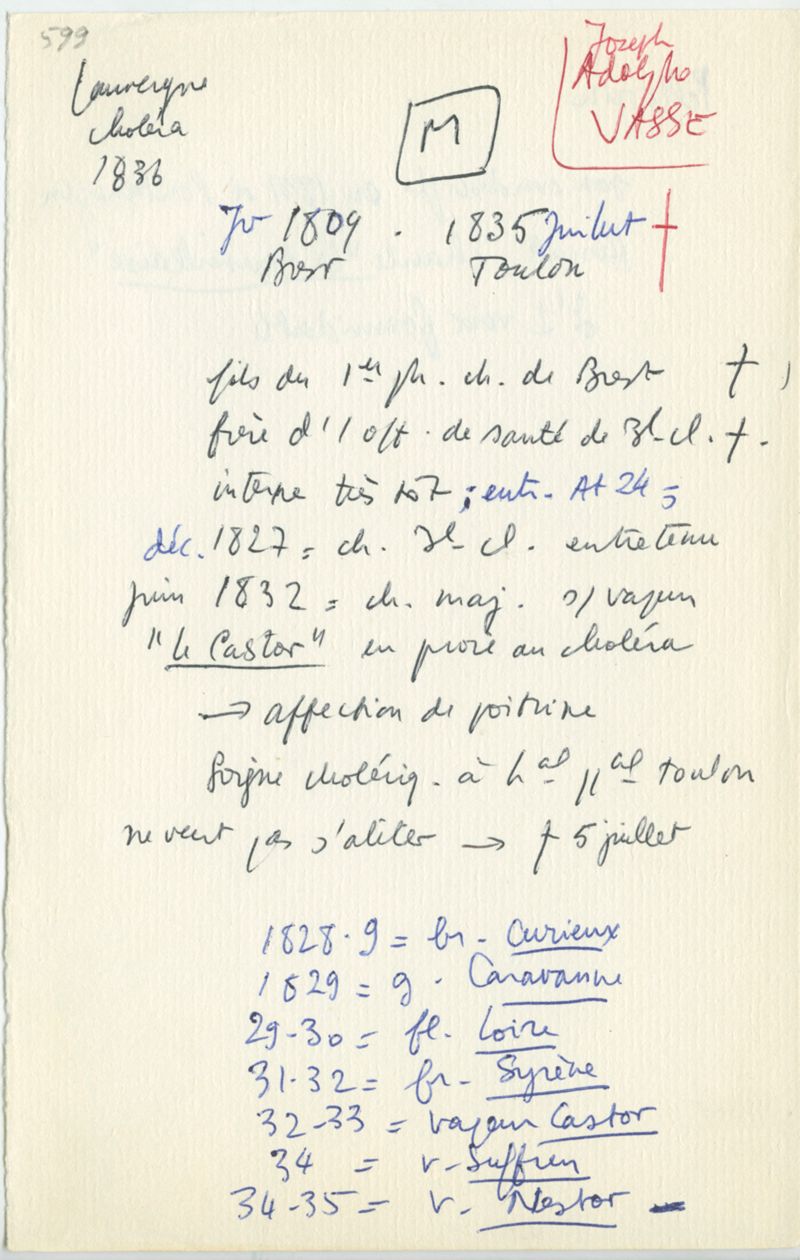 599
Joseph
Adolphe
VASSE
Lauvergne
choléra
1836
M
Jr 1809 . 1835 Juillet †
Brest Toulon
fils du 1er ph. ch. de Brest †
frère d'1 off. de santé de 3e cl. †.
interne très tôt ; entr. At 24 =
déc. 1827 = ch. 3e cl. entretenu
juin 1832 = ch. maj. s/ vapeur
"le Castor" en proie au choléra
→ affection de poitrine
Soigne cholériq. à hal pal Toulon
ne veut pas s'aliter → † 5 juillet
1828.9 = br. Curieux
1829 = g. Caravanne
29-30 = fl. Loire
31.32 = fr. Syrène
32-33 = vapeur Castor
34 = v. Suffren
34-35 = v. Nestor -